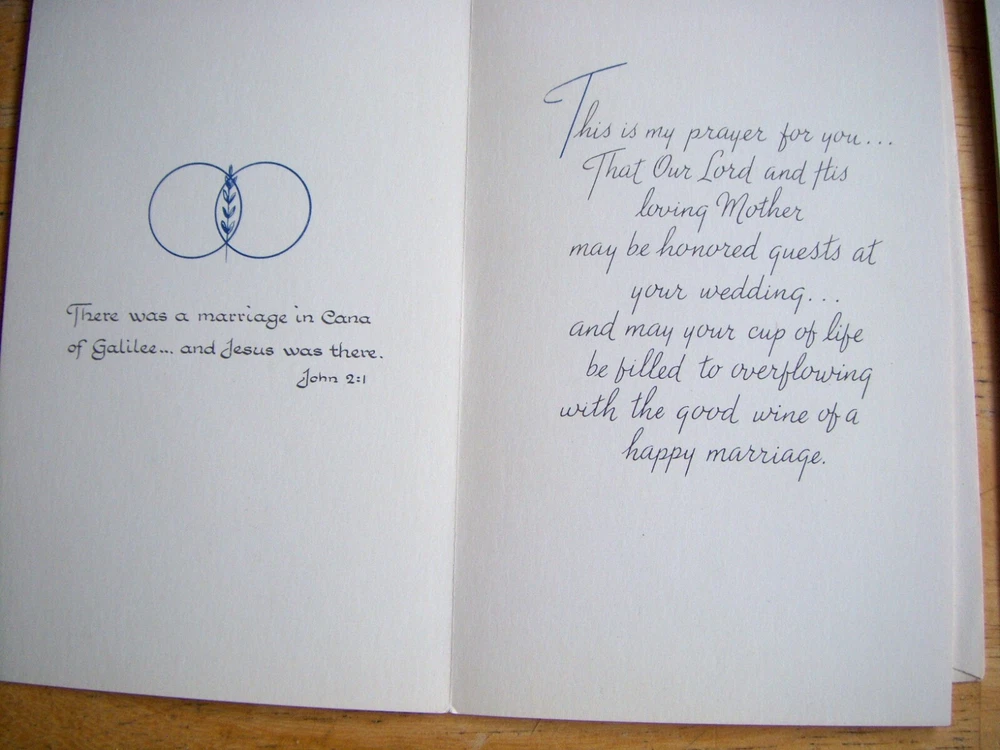 There was a marriage in Cana
of Galilee... and Jesus was there.
John 2:1
This is my prayer for you...
That Our Lord and His
loving Mother
may be honored guests at
your wedding...
and may your cup of life
be filled to overflowing
with the good wine of a
happy marriage.